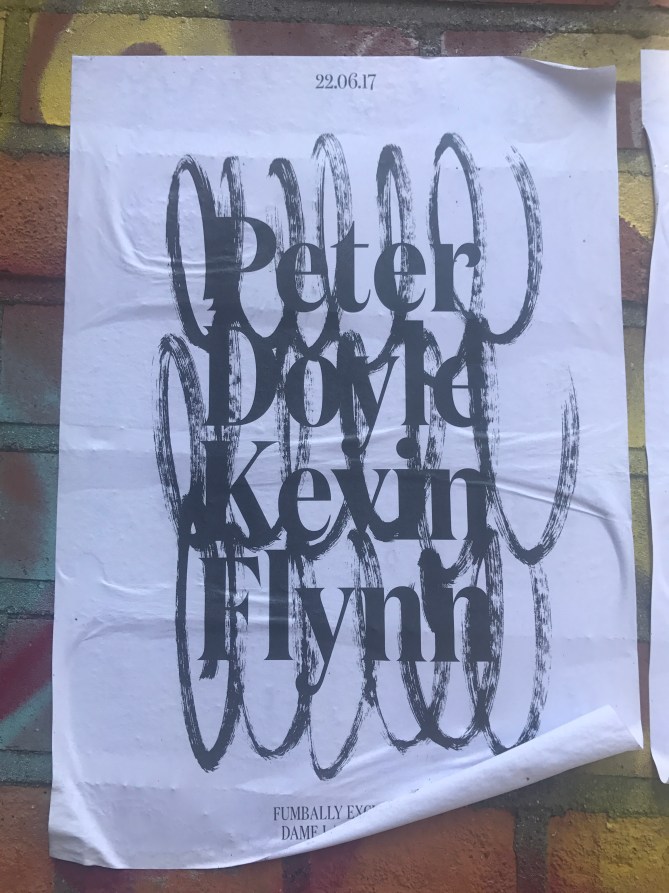 22.06.17
Peter
Doyle
Kevin
Flynn
FUMBALLY
DAME